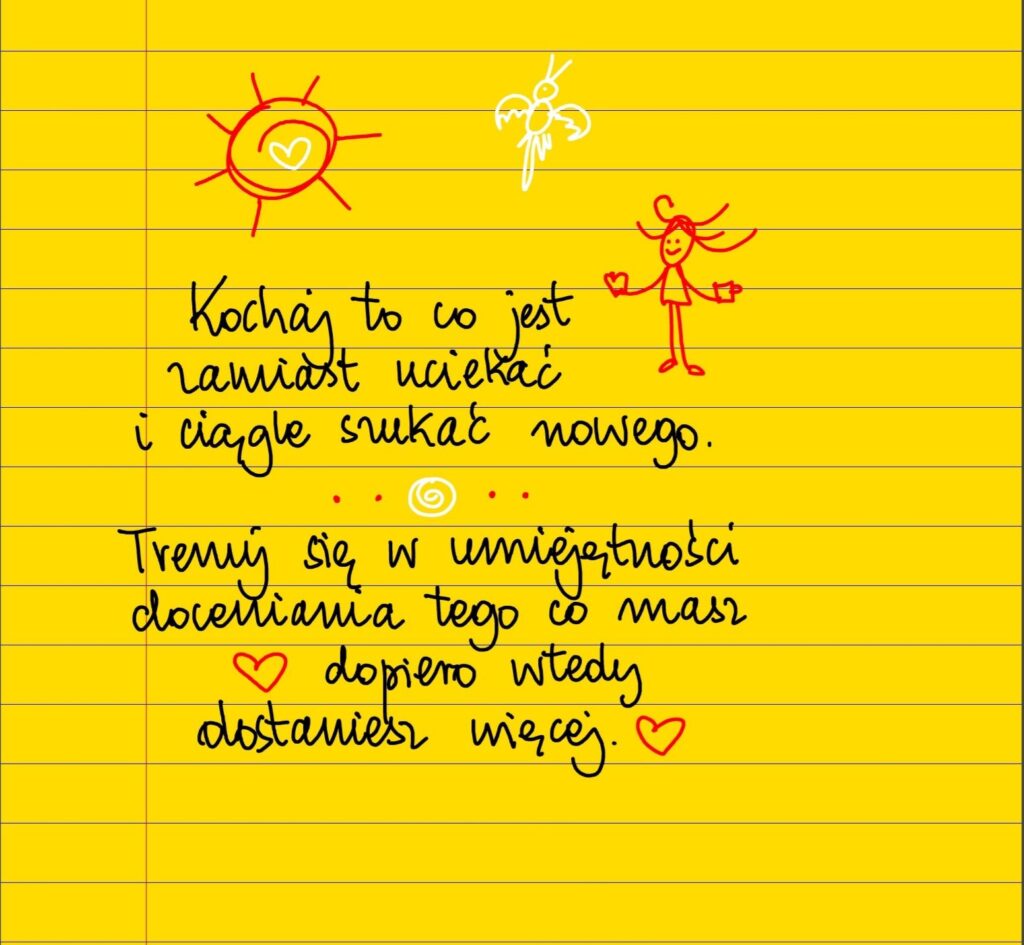 Kochaj to co jest
zamiast uciekać
i ciągle szukać nowego.
Trenuj się w umiejętności
doceniania tego co masz
dopiero wtedy
dostaniesz więcej.